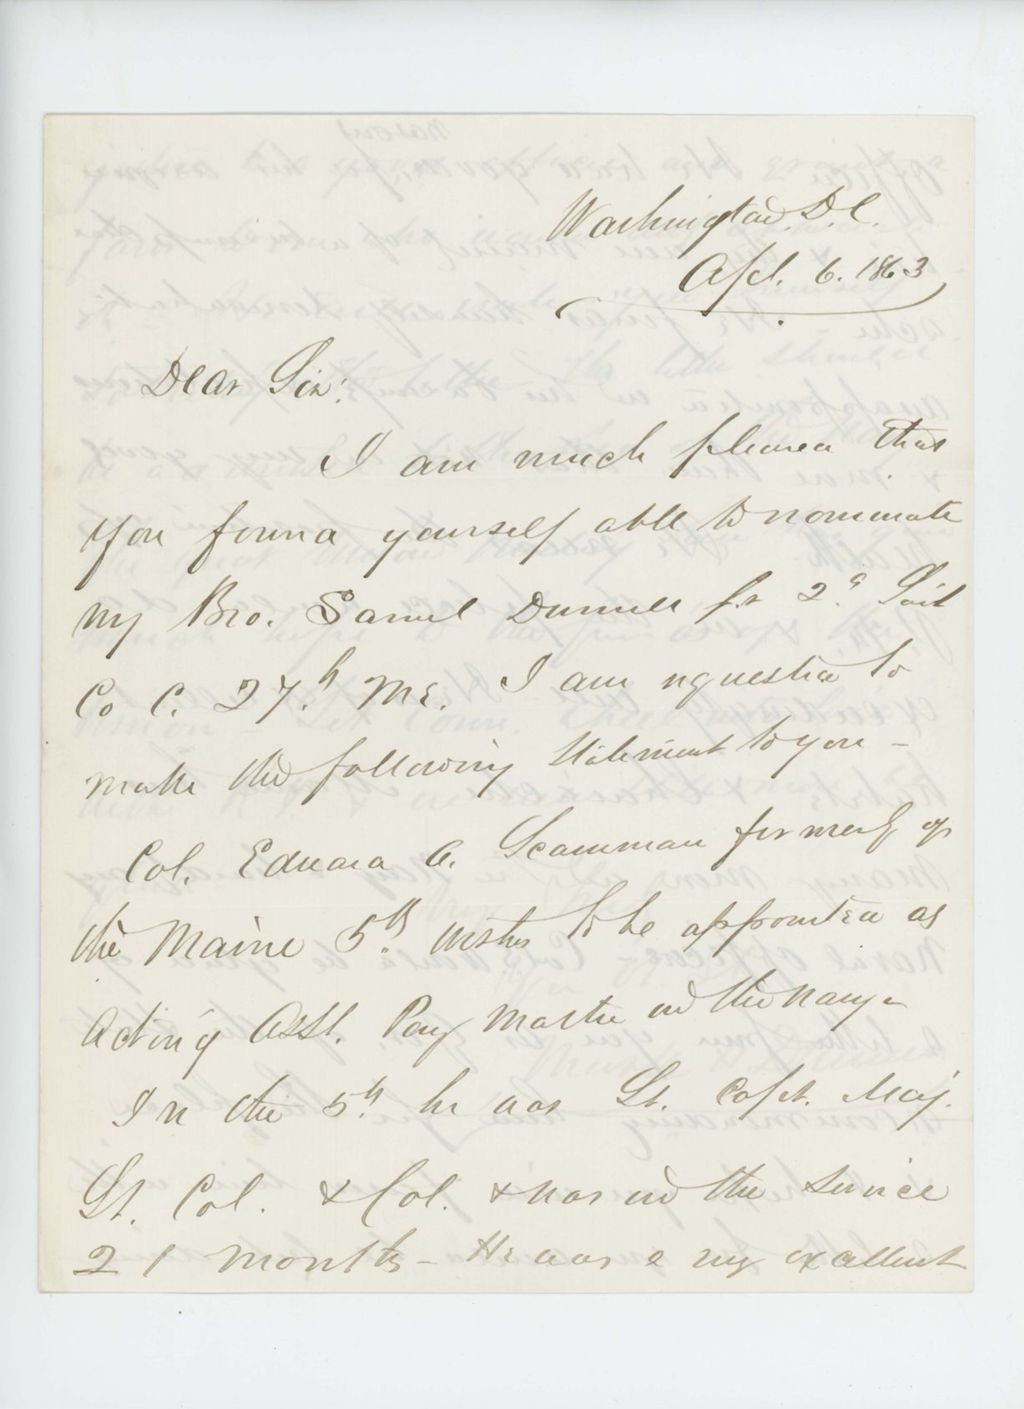 Washington D.C.
Apl. 6. 1863
Dear Sir:
I am much pleased that
you found yourself able to nominate
my Bro. Samuel Dunnell for 2d Lieut
Co C. 27th Me. I am requested to
make the following statement to you -
Col. Edward A. Scamman formerly of
the Maine 5th wishes to be appointed as
Acting Asst. Pay Master in the navy -
In the 5th he was Lt. Capt. Maj.
Lt. Col. & Col. & was in the service
21 months - He was a very excellent